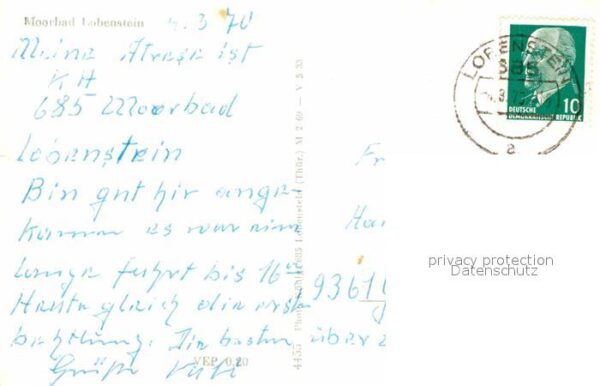 Moorbad Lobenstein
4.3.70
Meine Atrese ist
KH
685 Moorbad
Lobenstein
Bin gut hir ange-
kommen es war eine
lange fahrt bis 16⁰⁰
Heute gleich die erste
behtlung. Die besten
Grüße
VEP 0,20
M 2 69 V 5 35
LOBENSTEIN
685
a
10
DEUTSCHE
DEMOKRATISCHE REPUBLIK
Fr
Ha
9361
über
privacy protection
Datenschutz